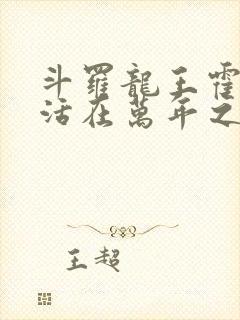 斗羅龍王霍
活在萬年之
王超